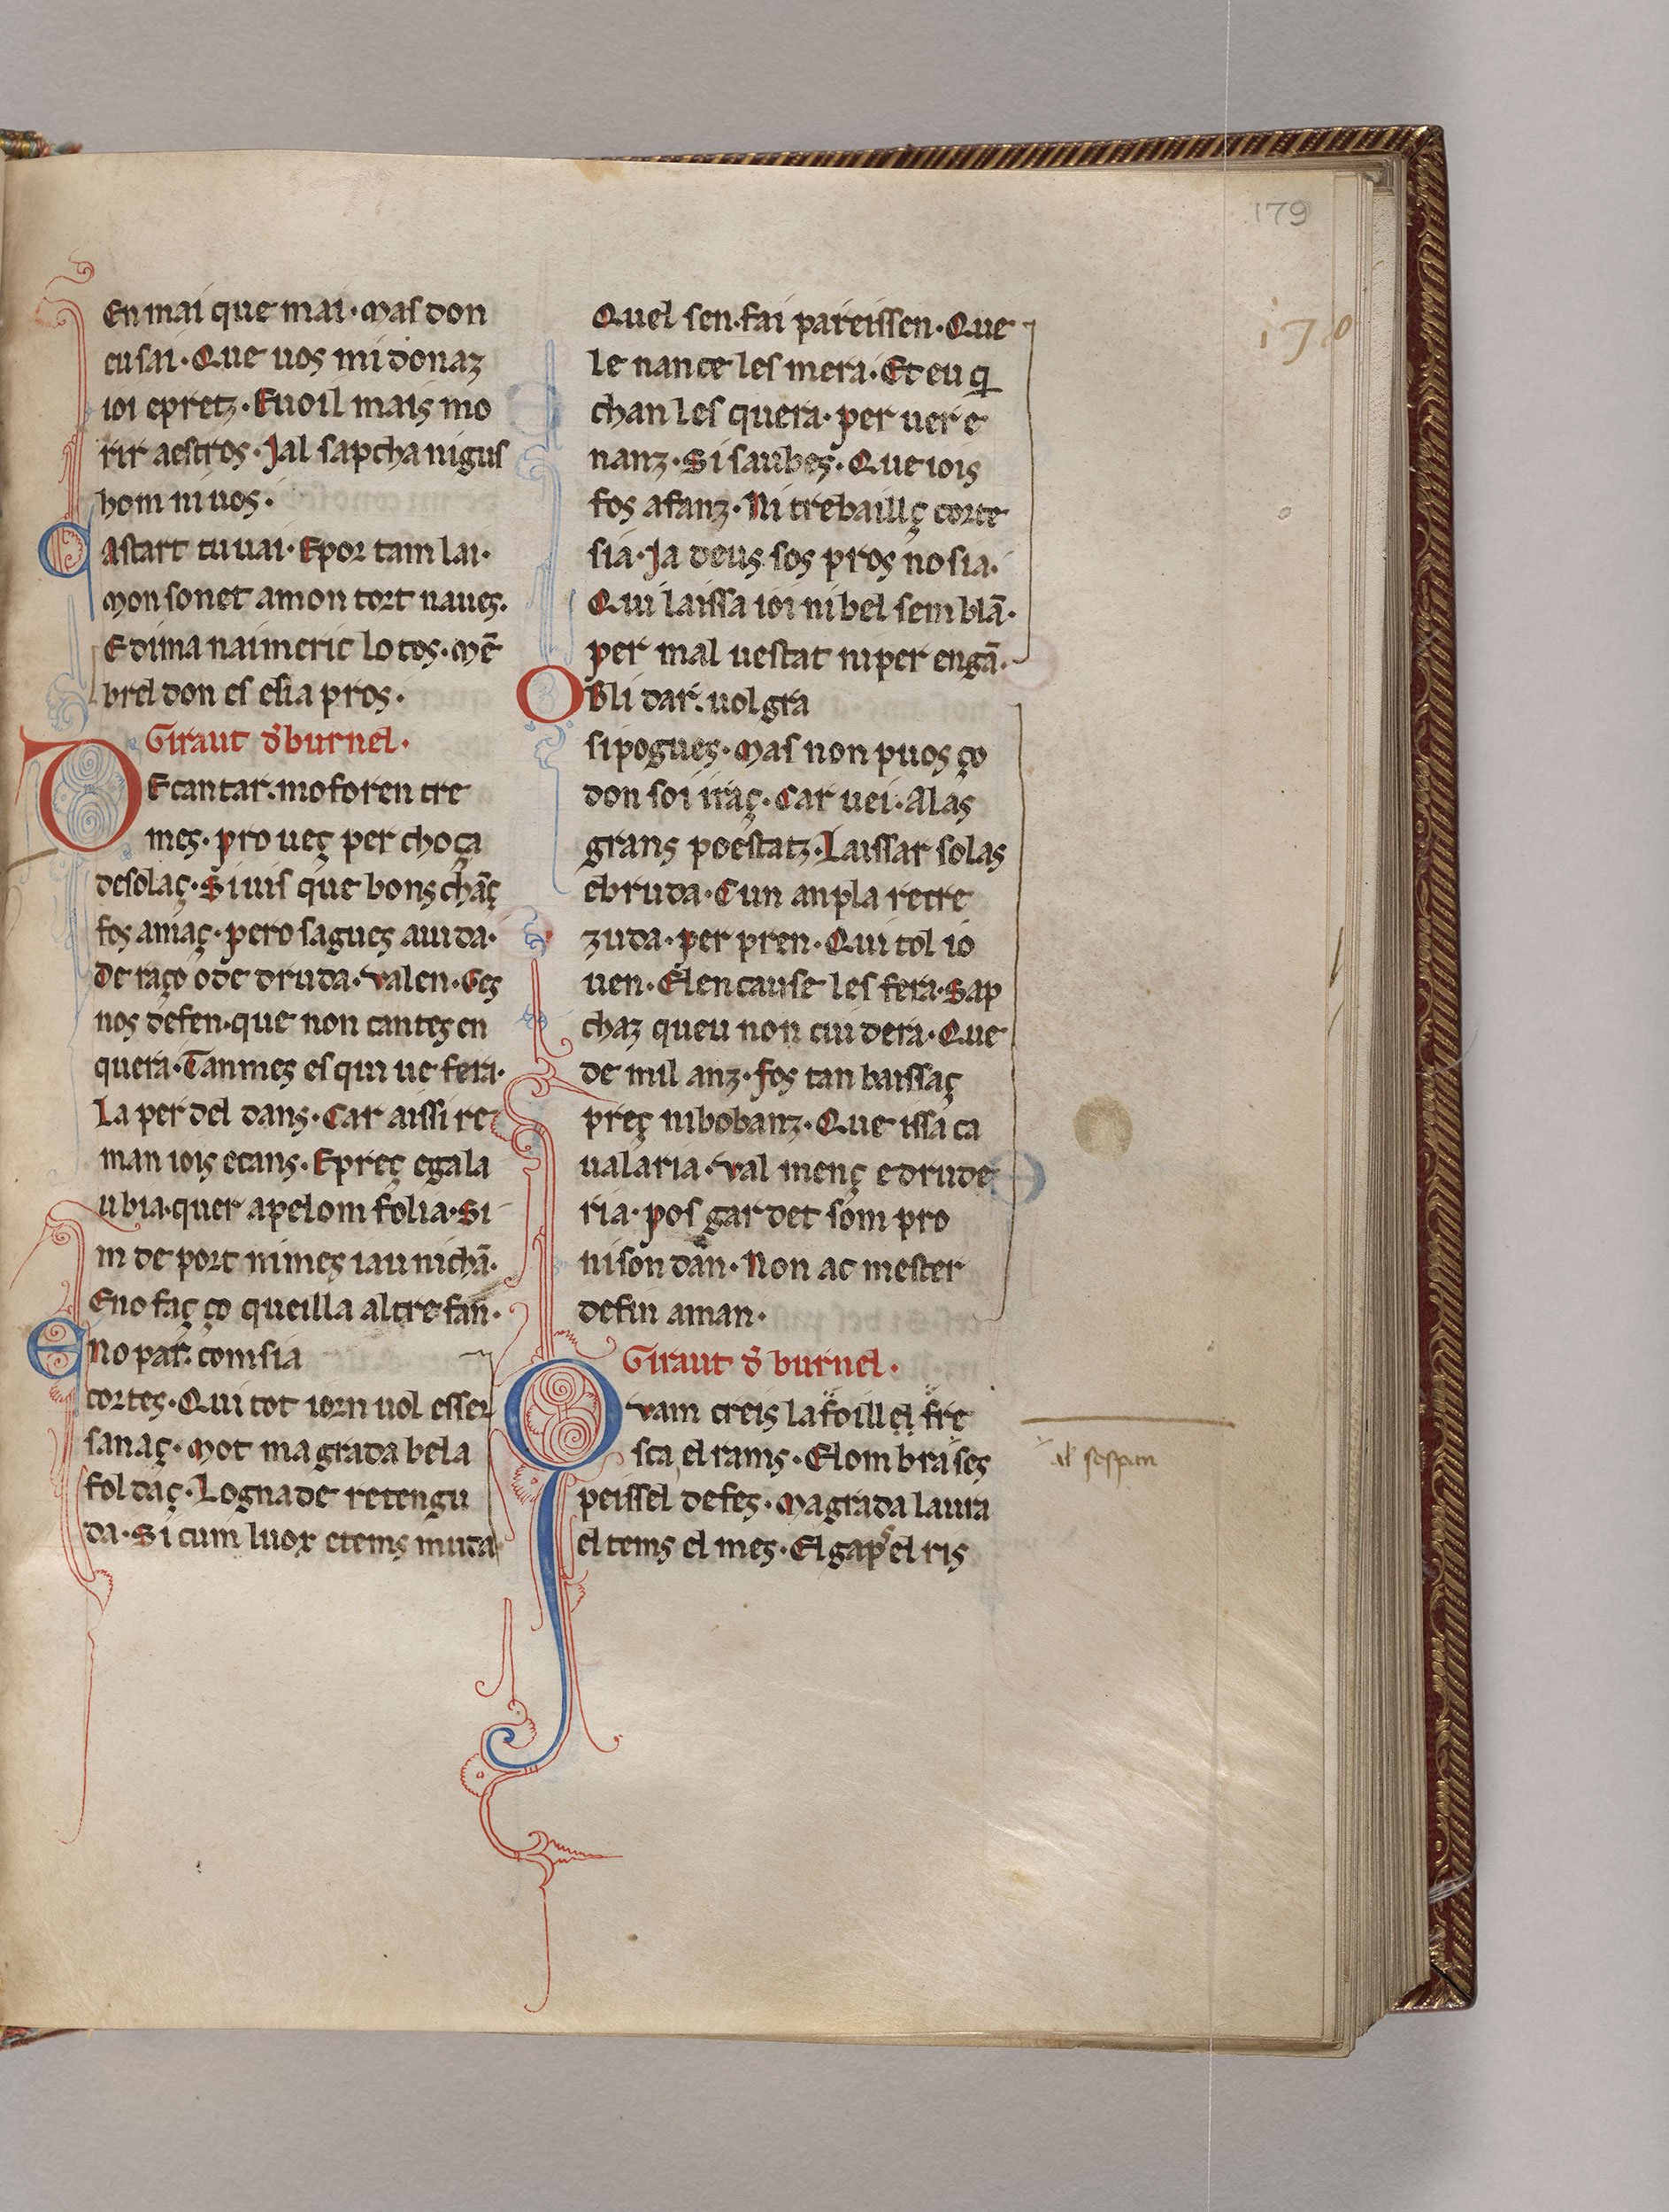 179
170
En mai que mai· Mas don
eu sai· Que uos mi donaz
ioi epretz· Euoil mais mo
rir aestros· Jal sapcha nigus
hom ni uos·
Bastart tu uai· Epor tam lai·
Mon sonet amon tort naues·
E dima naimeric lo tos· Mē
brel don es esia pros·
Giraut đ burnel·
DE cantar· mo foren tre
mes· pro ueç per choça
desolaç· Si uis que bons chāç
fos amaç· pero sagues auida·
De raço o de druda· Valen· Ges
nos defen· que non cantes en
quera· Tan mes es qui ue fera·
La per del dans· Car aissi re
man iois ecans· Epreç egala
ubia· quer apelom folia· Si
m de port ni mes iau ni chā·
Eno faç ço queilla altre fan·
Eno par· com sia
cortes· Qui tot iorn uol esser
sanaç· Mot ma grada bela
fol daç· Logna de retengu
da· Si cum luox etems muda
Quel sen· fai pareissen· Que
le nance les mera· Et eu q
chan les quera· per uer e
nanz· Si saubes· Que iois
fos afanz· Ni trebaillç corte
sia· Ja deus sos pros no sia·
Qui laissa ioi ni bel sem blā·
per mal uestat ni per engā·
OBli dar· uol gra
si pogues· Mas non puos ço
don soi iraç· Car uei· Alas
grans poestatz· Laissar solas
ebruda· Cun anpla retre
zuda· per pren· Qui tol io
uen· Elen cause les fera· Sap
chaz queu non cui dera· Que
de mil anz· fos tan baissaç
preç ni bobanz· Que issa ca
ualaria· Val menç e drude
ria· pos gar det som pro
ni son dan· Non ac mester
de fin aman·
Giraut đ burnel·
Quam creis la foill el fre
sca el rams· El om bra ses
peissel defes· Magrada laura
el tems el mes· El gap el ris